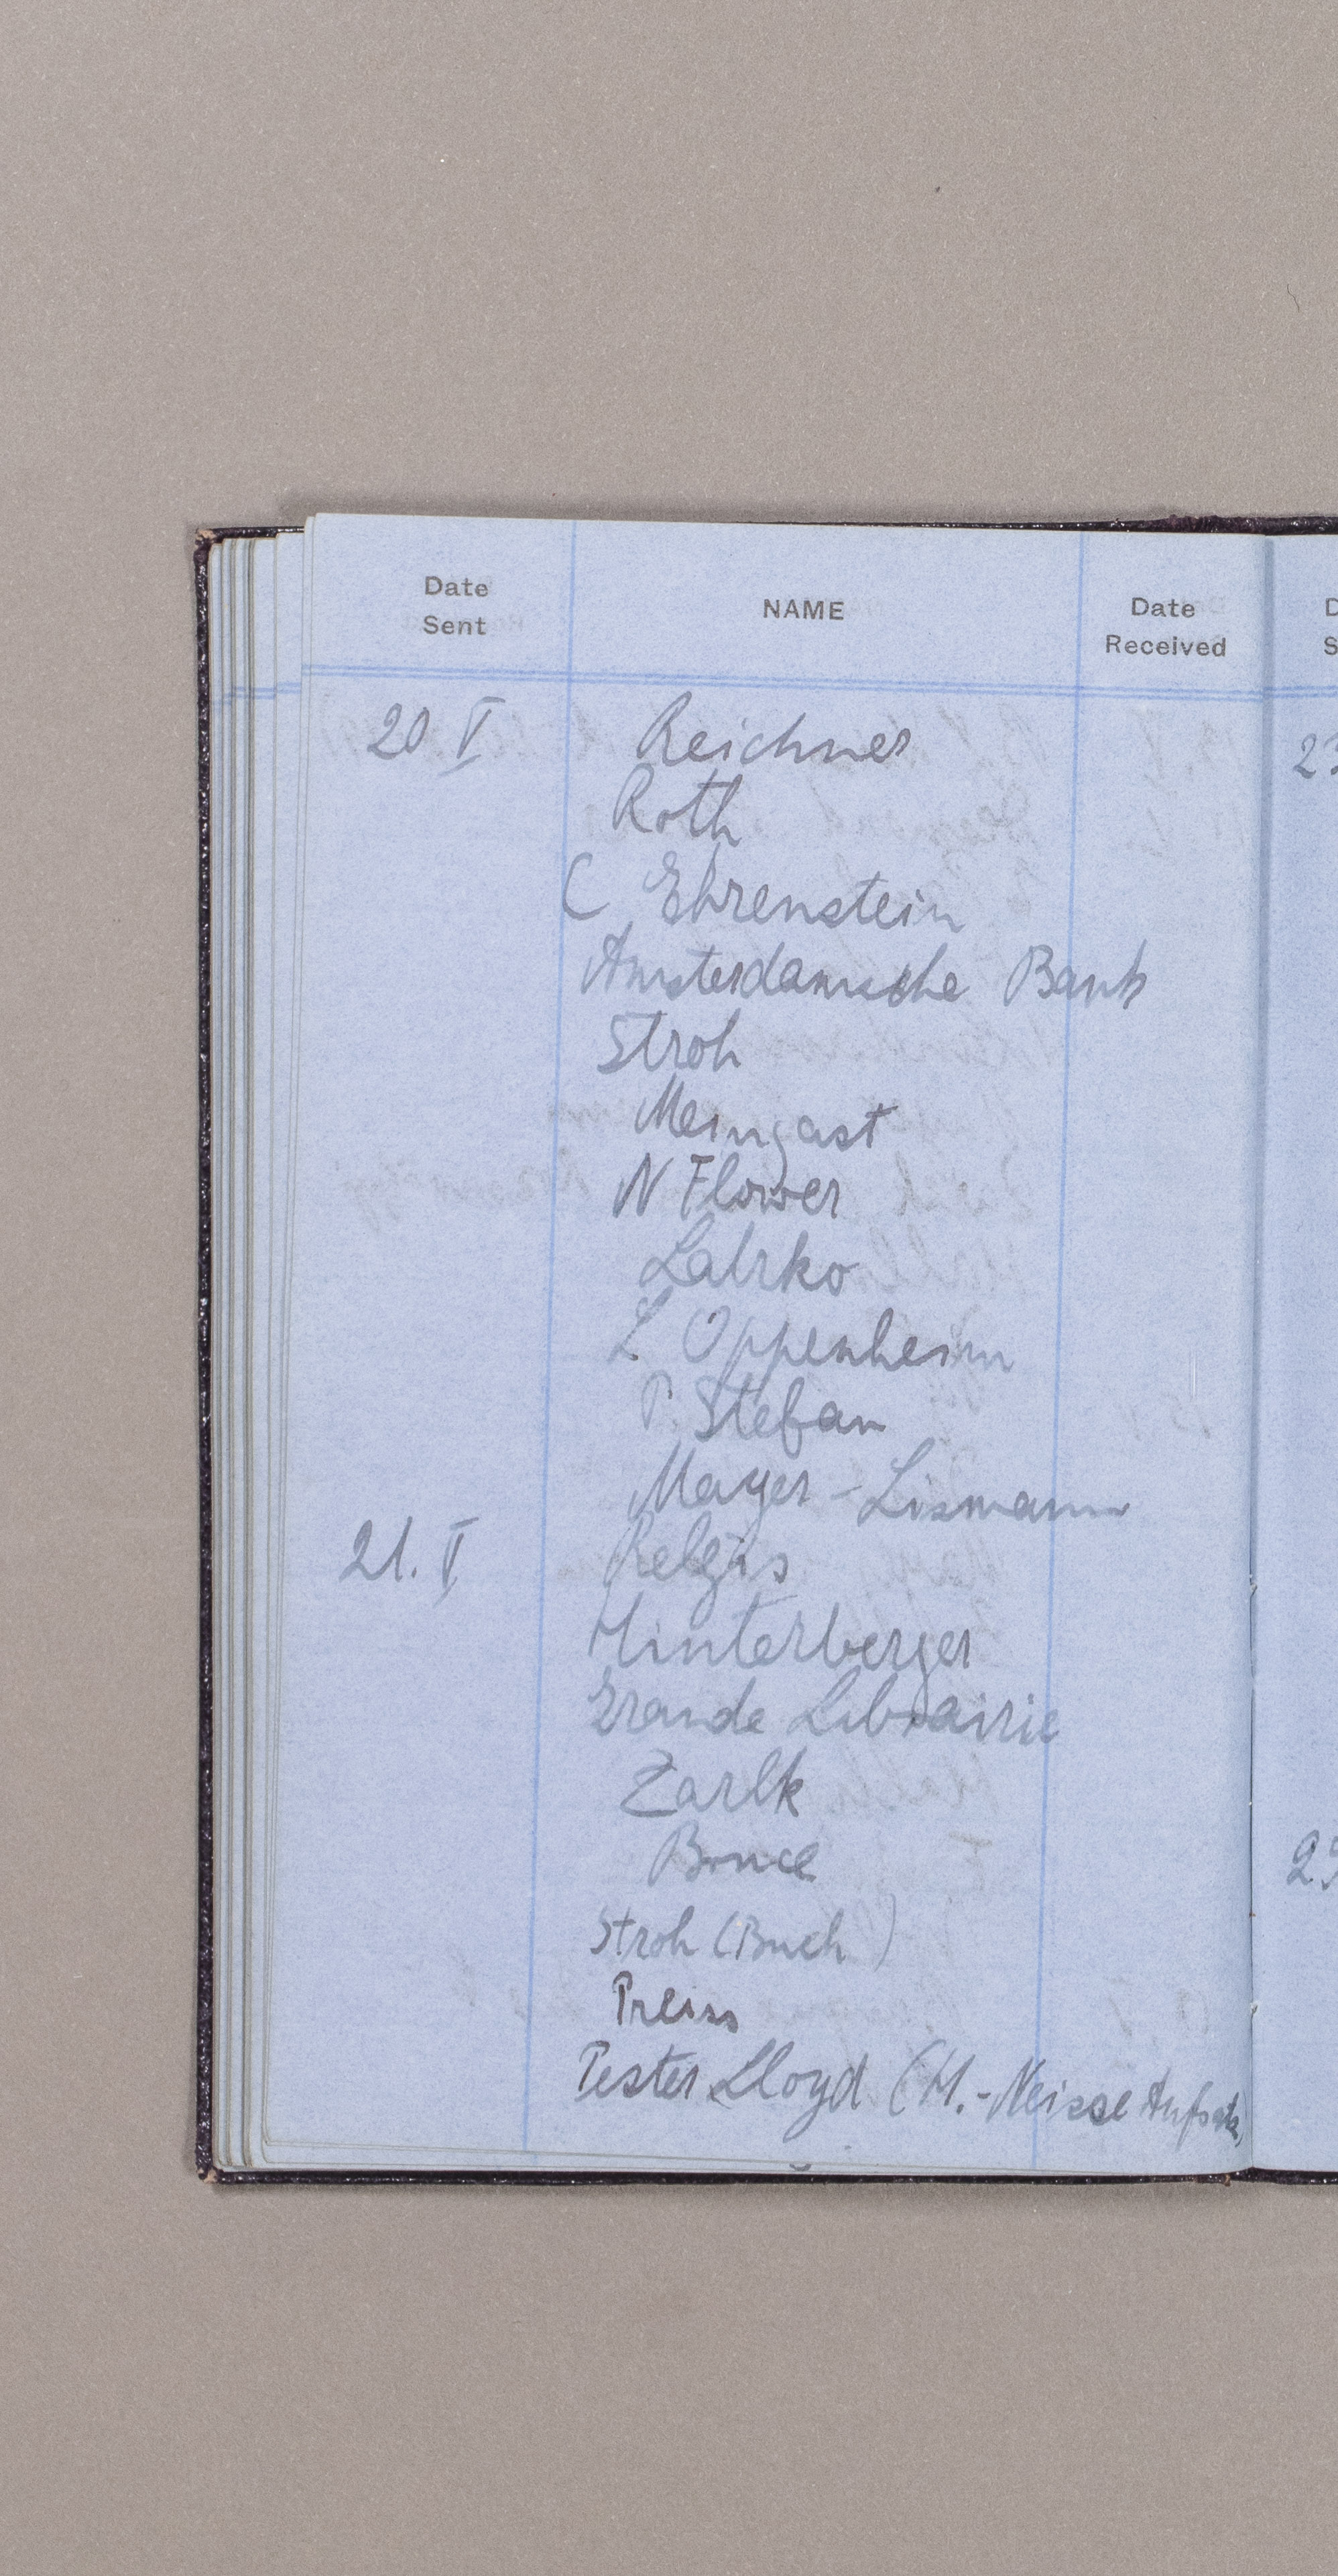 Date Sent NAME Date Received
20 V Reichner
Roth
C Ehrenstein
Amsterdamsche Bank
Stroh
Meingast
N Flower
Labrko
L Oppenheim
P. Stefan
Mayer - Lismann
21. V Relgis
Hinterberger
Grande Librairie
Zarek
Bruce
Stroh (Buch)
Preiss
Pester Lloyd (H.-Neisse Aufsatz)